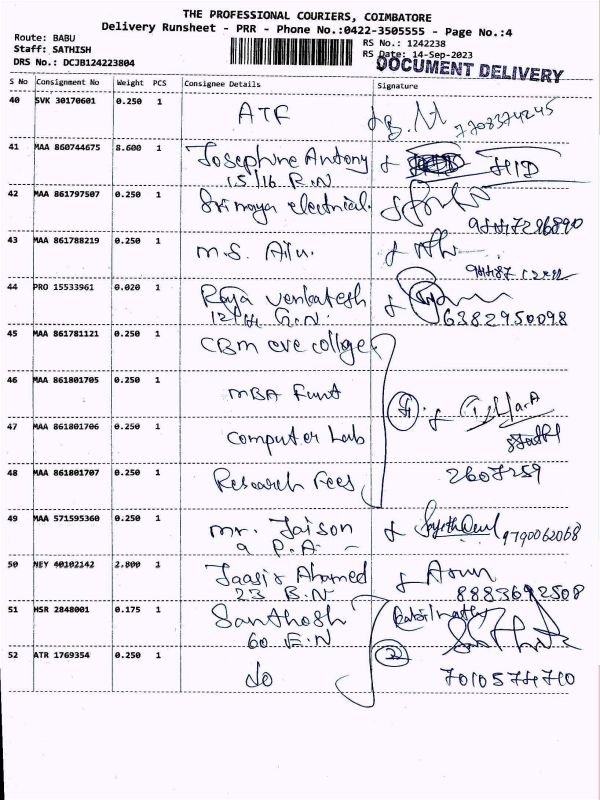 THE PROFESSIONAL COURIERS, COIMBATORE
Delivery Runsheet - PRR - Phone No.:0422-3505555 - Page No.:4
Route: BABU
Staff: SATHISH
DRS No.: DCJB124223804
RS No.: 1242238
RS Date: 14-Sep-2023
DOCUMENT DELIVERY
S No Consignment No Weight PCS Consignee Details Signature
40 SVK 30170601 0.250 1 ATF 7708374245
41 MAA 860744675 8.600 1 Josephine Antony
15/16 R.N
42 MAA 861797507 0.250 1 Sri maya electrical.
43 MAA 861788219 0.250 1 M.S.
44 PRO 15533961 0.020 1 Raja Venkatesh
12/14 G.N. 6382950098
45 MAA 861781121 0.250 1 CBM eve collge
46 MAA 861801705 0.250 1 MBA Funt
47 MAA 861801706 0.250 1 Computer Lab
48 MAA 861801707 0.250 1 Research Fees 2607259
49 MAA 571595360 0.250 1 Mr. Jaison 9790062068
9 P.A
50 NEY 40102142 2.800 1 Jaasir Ahamed Arun
23 B.N 8883692508
51 HSR 2848001 0.175 1 Santhosh
60 E.N
52 ATR 1769354 0.250 1 do 2 7010574710